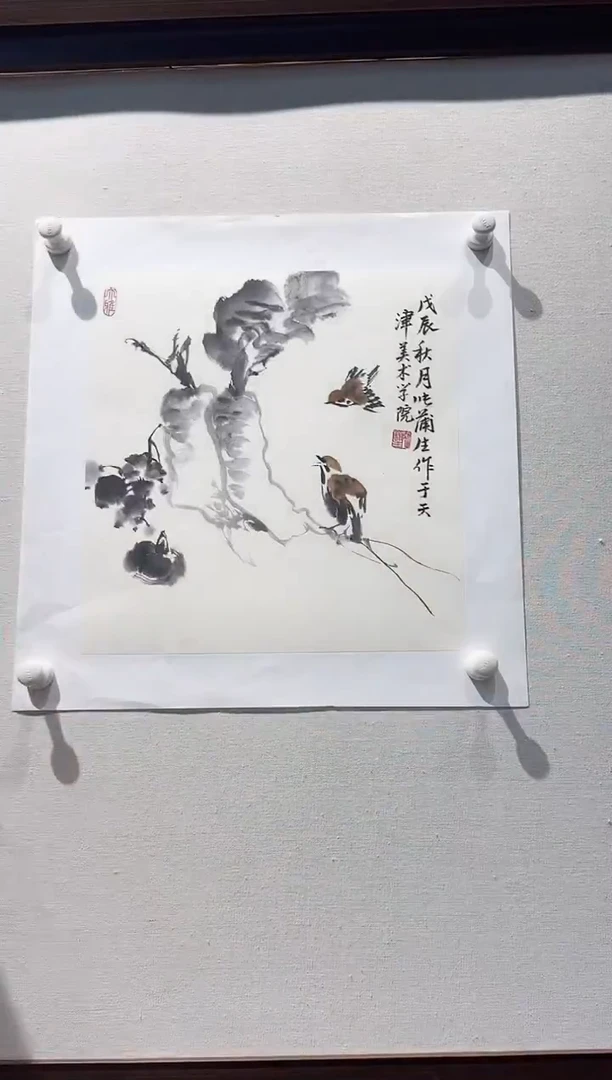 戊辰秋月蒲生作于天
津美术学院